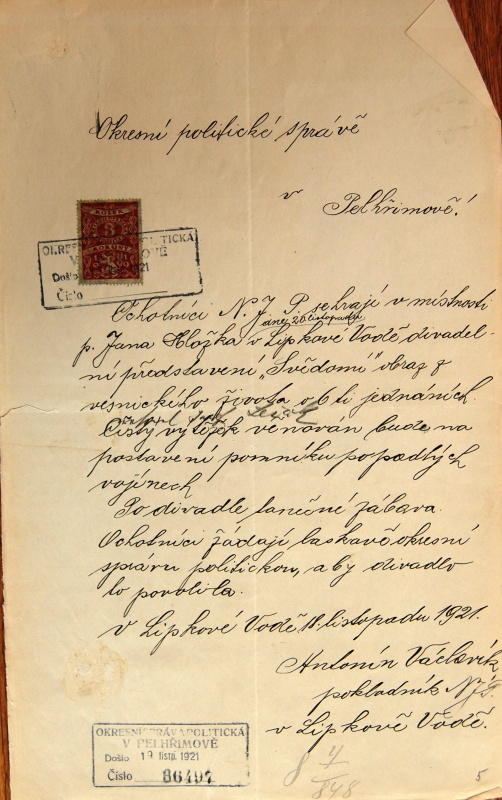 Okresní politické správě
v
Pelhřimově!
KOLEK
3
OKRESNÍ SPRÁVA POLITICKÁ
V PELHŘIMOVĚ
Došlo 1921
Číslo
Ochotníci N. J. P. sehrají v místnosti
dne 20 listopadu
p. Jana Hložka v Lipkové Vodě divadel-
ní představení „Svědomí" obraz z
vesnického života o 6ti jednáních.
Čistý výtěžek venován bude na
postavení pomníku popadlých
vojínech
Po divadle taneční zábava.
Ochotníci žádají laskavě okresní
správu politickou, aby divadlo
to povolila.
v Lipkové Vodě 18. listopadu 1921.
Antonín Václavík
pokladník N J P.
v Lipkově Vodě.
OKRESNÍ SPRÁVA POLITICKÁ
V PELHŘIMOVĚ
Došlo 19 listp. 1921
Číslo 36497
8 4/848
5